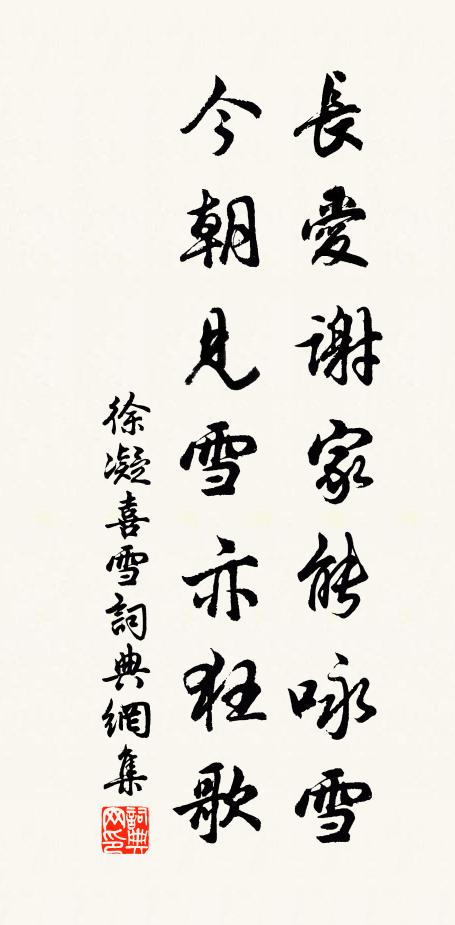 長愛謝家能咏雪
今朝見雪亦狂歌
徐凝喜雪詞典網集
詞典
网印